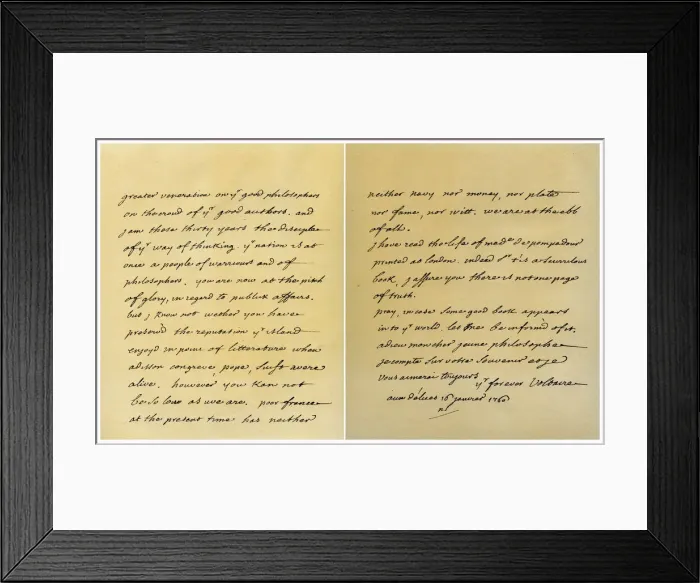 greater veneration on yr good philosophers
on the croud of yr good authors. and
j am these thirty years the disciple
of yr way of thinking. yr nation is at
once a people of warriours and of
philosophers. you are now at the pitch
of glory, in regard to publik affairs.
but j know not wether you have
preserv'd the reputation yr island
enjoy'd in point of litterature when
adisson congreve, pope, swift were
alive. however you kan not
be so low as we are. poor france
at the present time has neither
neither navy nor money, nor plate
nor fame, nor witt. we are at the ebb
of all.
j have read the life of made de pompadour
printed at london. indeed Sr t'is a scurrilous
book. j assure you there is not one page
of truth.
pray, in case some good book appears
in to yr world, let me be inform'd of it.
adieu mon cher jeune philosophe
je compte sur votre souvenir et je
vous aimerai toujours
yr forever Voltaire
aux délices 16 janvier 1760